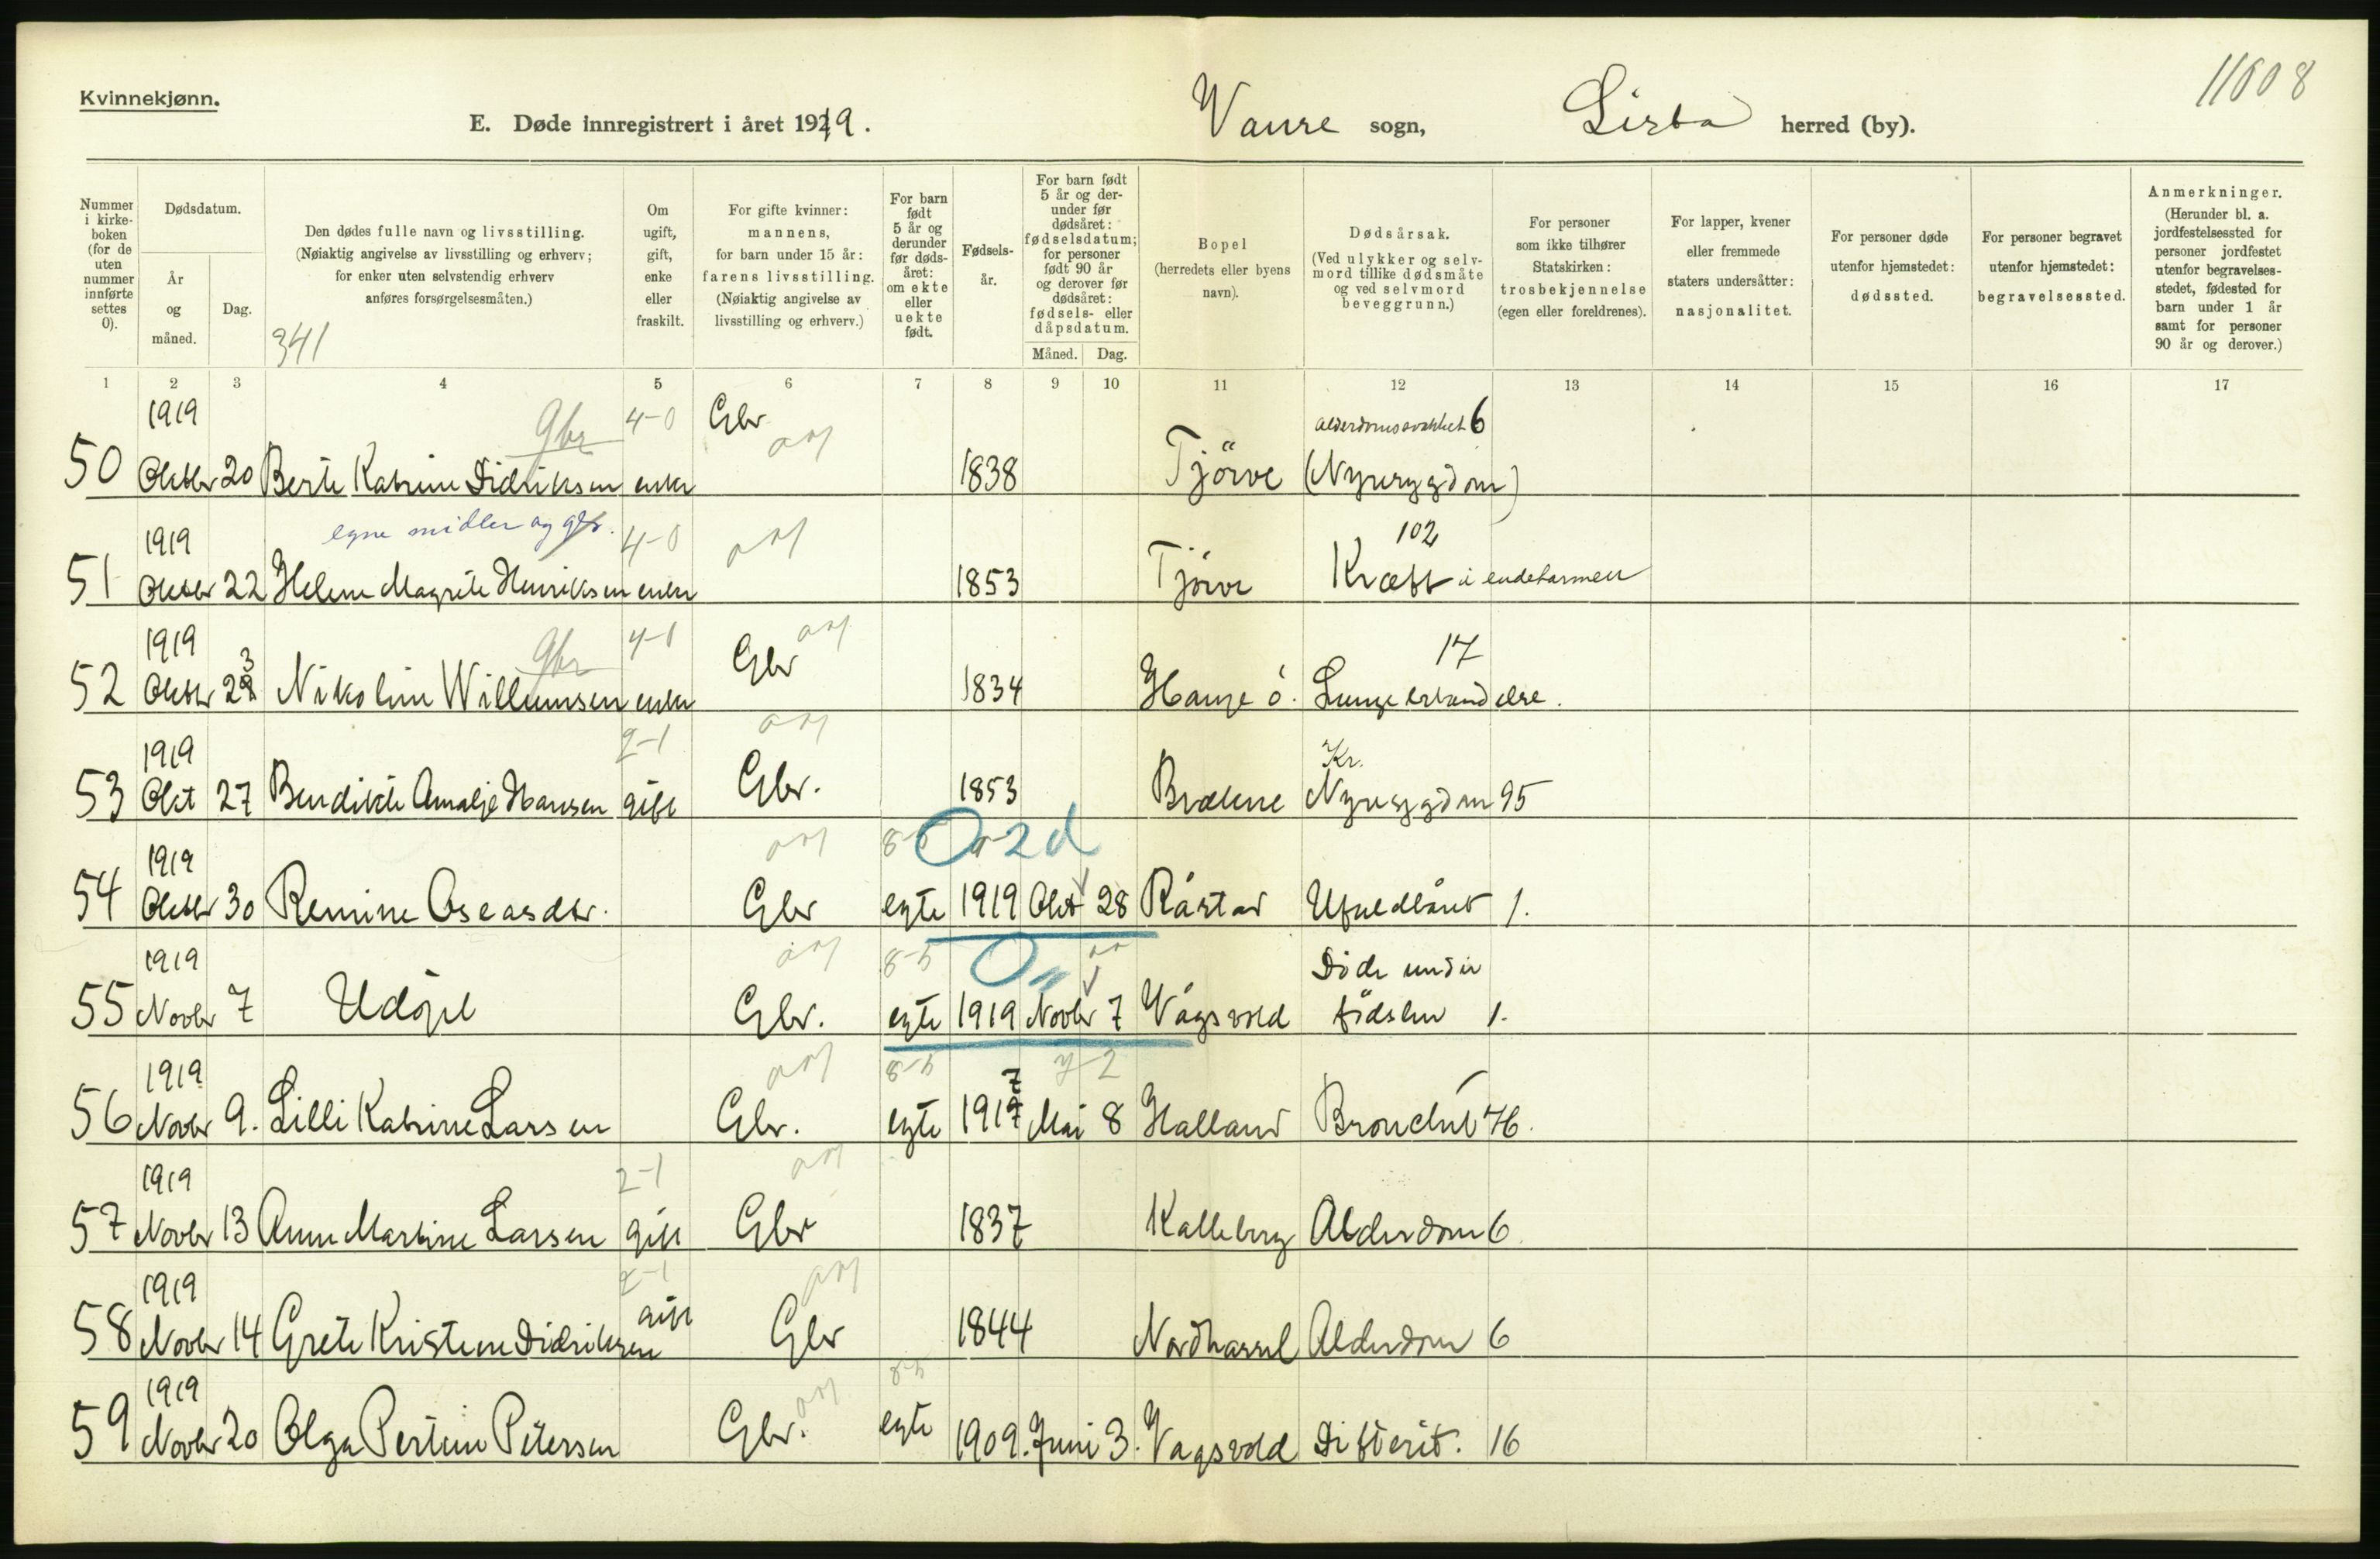 Kvinnekjønn.
11608
E. Døde innregistrert i året 1919.
Vanse sogn, Lista herred (by).
Nummer i kirkeboken (for de uten nummer innførte settes 0).
Dødsdatum.
År og måned.
Dag.
Den dødes fulle navn og livsstilling.
(Nøiaktig angivelse av livsstilling og erhverv; for enker uten selvstendig erhverv anføres forsørgelsesmåten.)
341
Om ugift, gift, enke eller fraskilt.
For gifte kvinner: mannens, for barn under 15 år: farens livsstilling.
(Nøiaktig angivelse av livsstilling og erhverv.)
For barn født 5 år og derunder før dødsåret: om ekte eller uekte født.
Fødselsår.
For barn født 5 år og derunder før dødsåret: fødselsdatum; for personer født 90 år og derover før dødsåret: fødsels- eller dåpsdatum.
Måned. Dag.
Bopel (herredets eller byens navn).
Dødsårsak.
(Ved ulykker og selvmord tillike dødsmåte og ved selvmord beveggrunn.)
For personer som ikke tilhører Statskirken: trosbekjennelse (egen eller foreldrenes).
For lapper, kvener eller fremmede staters undersåtter: nasjonalitet.
For personer døde utenfor hjemstedet: dødssted.
For personer begravet utenfor hjemstedet: begravelsessted.
Anmerkninger.
(Herunder bl. a. jordfestelsessted for personer jordfestet utenfor begravelsesstedet, fødested for barn under 1 år samt for personer 90 år og derover.)
1 2 3 4 5 6 7 8 9 10 11 12 13 14 15 16 17
1919 Gbr 4-0 Gbr alderdomssvakhet 6
50 Oktbr 20 Berte Katrine Didriksen enke 1838 Tjörve (Nyresygdom)
1919 egne midler og gbr. 4-0 102
51 Oktbr 22 Helene Magrete Henriksen enke 1853 Tjörve Kræft i endetarmen
1919 3 Gbr 4-0 Gbr 17
52 Oktbr 28 Nikoline Willumsen enke 1834 Hauge ö. Lungebetændelse.
1919 2-1 Kr.
53 Okt 27 Bendikte Amalje Hansen gift Gbr. 1853 Brælene Nyresygdom 95
1919 8-5 0-2 d
54 Oktbr 30 Remine Oseasdtr. Gbr egte 1919 Okt 28 Råstad Ufuldbåret 1.
1919 8-5 Död under
55 Novbr 7 Udöpt Gbr. egte 1919 Novbr 7 Vågsvold födslen 1.
1919 8-5 7 2
56 Novbr 9. Lilli Katrine Larsen Gbr. egte 1917 Mai 8 Halland Bronchit 76.
1919 2-1
57 Novbr 13 Anne Martine Larsen gift Gbr 1837 Kalleberg Alderdom 6
1919 2-1 gift
58 Novbr 14 Grete Kristene Didriksen Gbr 1844 Nordhassel Alderdom 6
1919 8-5
59 Novbr 20 Olga Pertine Petersen Gbr. egte 1909. Juni 3. Vågsvold Difterit. 16